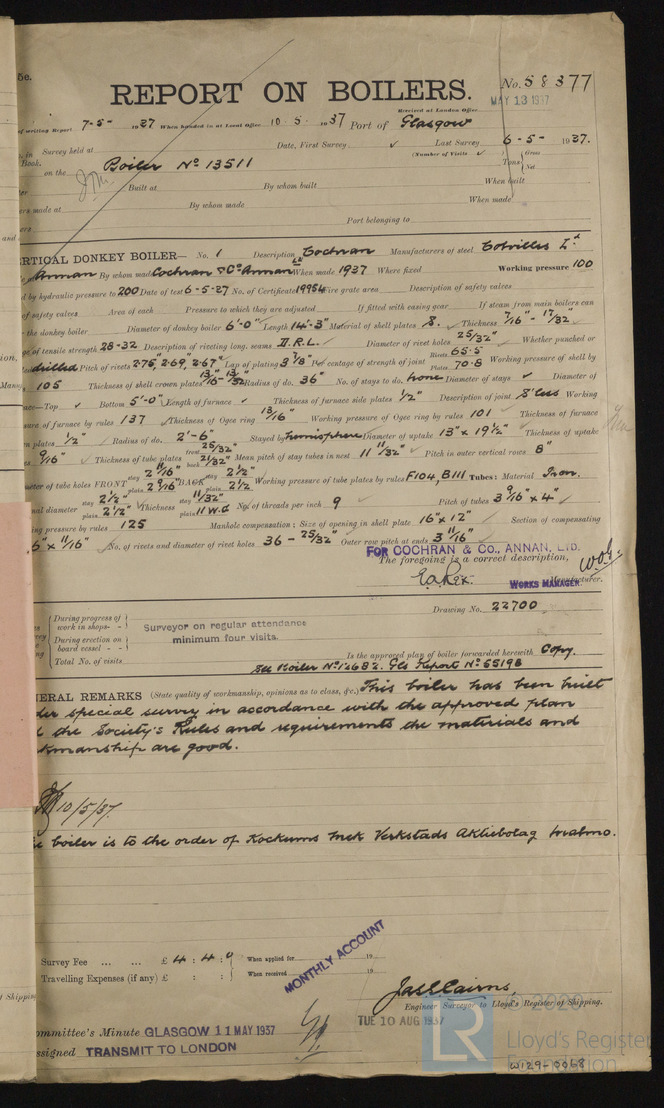 REPORT ON BOILERS.
No. 58377
Received at London Office MAY 13 1937
of writing Report 7-5- 1937 When handed in at Local Office 10. 5. 1937 Port of Glasgow
in Survey held at Date, First Survey Last Survey 6-5- 1937.
Book. (Number of Visits
on the Boiler No 13511 Tons Gross Net
Built at By whom built When built
made at By whom made When made
Port belonging to
ERTICAL DONKEY BOILER— No. 1 Description Cochran Manufacturers of steel Colvilles Ld
Annan By whom made Cochran & Co Annan Ld When made 1937 Where fixed Working pressure 100
d by hydraulic pressure to 200 Date of test 6-5-27 No. of Certificate 19954 Fire grate area Description of safety valves
of safety valves Area of each Pressure to which they are adjusted If fitted with easing gear If steam from main boilers can
the donkey boiler Diameter of donkey boiler 6'-0" Length 14'-3" Material of shell plates S. Thickness 7/16" - 17/32"
e of tensile strength 28-32 Description of riveting long. seams D.R.L. Diameter of rivet holes 25/32" Whether punched or
drilled Pitch of rivets 2.75" 2.69" 2.67" Lap of plating 3 7/8" Percentage of strength of joint Rivets 65.5 Plates 70.8 Working pressure of shell by
105 Thickness of shell crown plates 13/16" 13/32" Radius of do. 36" No. of stays to do. None Diameter of stays Diameter of
ace—Top Bottom 5'-0" Length of furnace Thickness of furnace side plates 1/2" Description of joint S'less Working
sure of furnace by rules 137 Thickness of Ogee ring 13/16" Working pressure of Ogee ring by rules 101 Thickness of furnace
n plates 1/2" Radius of do. 2'-6" Stayed by hemisphere Diameter of uptake 13" x 19 1/2" Thickness of uptake
s 9/16" Thickness of tube plates front 25/32" back 21/32" Mean pitch of stay tubes in nest 11 11/32" Pitch in outer vertical rows 8"
meter of tube holes FRONT stay 2 11/16" plain 2 9/16" BACK stay 2 1/2" plain 2 1/2" Working pressure of tube plates by rules F104, B111 Tubes: Material Iron.
nal diameter stay 2 1/2" plain 2 1/2" Thickness stay 11/32" plain 11 W.G No. of threads per inch 9 Pitch of tubes 3 9/16" x 4"
ing pressure by rules 125 Manhole compensation: Size of opening in shell plate 16" x 12" Section of compensating
6" x 11/16" No. of rivets and diameter of rivet holes 36 - 25/32" Outer row pitch at ends 3 11/16"
FOR COCHRAN & CO., ANNAN, LTD.
The foregoing is a correct description,
WORKS MANAGER. Manufacturer.
During progress of work in shops- - Surveyor on regular attendance
During erection on board vessel - - minimum four visits.
Drawing No. 22700
Total No. of visits Is the approved plan of boiler forwarded herewith Copy.
See Boiler No 12682. Gls Report No 55198
NERAL REMARKS (State quality of workmanship, opinions as to class, &c.) This boiler has been built
der special survey in accordance with the approved plan
the Society's Rules and requirements the materials and
kmanship are good.
10/5/37.
e boiler is to the order of Kockums Mek Verkstads Aktiebolag Malmo.
Survey Fee ... ... £ 4 : 4 : 0 When applied for 19
Travelling Expenses (if any) £ : : When received 19
MONTHLY ACCOUNT
Jas Cairns
Engineer Surveyor to Lloyd's Register of Shipping.
ommittee's Minute GLASGOW 11 MAY 1937
TUE 10 AUG 1937
ssigned TRANSMIT TO LONDON
LR
© 2020
Lloyd's Register
Foundation
W129-0068